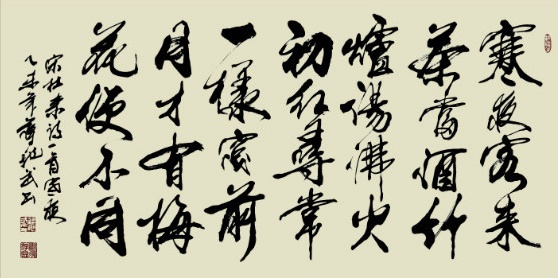 寒夜客来
茶當酒竹
爐湯沸火
初红尋常
一樣窗前
月才有梅
花便不同
宋杜耒诗一首寒夜
乙未年书